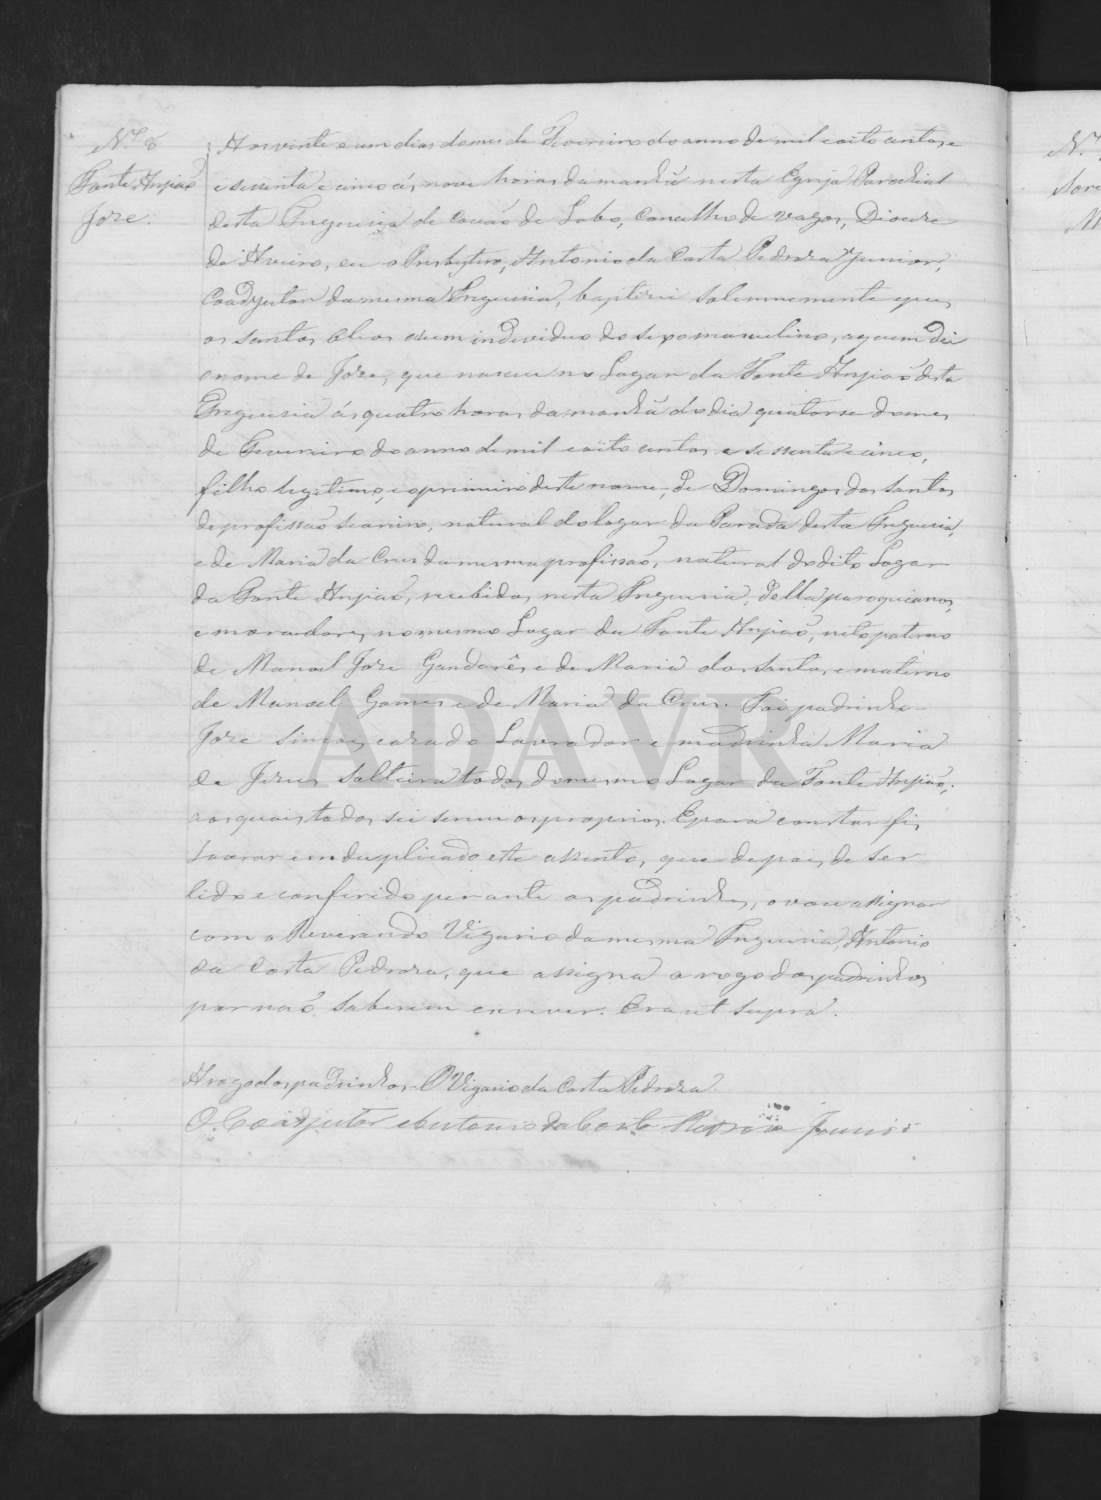 Nº 8
Fonte Anjiaõ
Joze.
Aos vinte e um dias do mes de Fevereiro do anno de mil e oito centos e
e sesenta e cinco ás nove horas da manhã nesta Egreja Parochial
desta Freguezia de Covaõ do Lobo, Concelho de Vagos, Diocese
de Aveiro, eu o Presbytero, Antonio da Costa Pedroza Junior,
Coadjutor da mesma Freguesia, baptizei solemnemente e puz
os santos oleos a um individuo do sexo masculino, a quem dei
o nome de Joze, que nasceu no Lugar da Fonte Anjiaõ desta
Freguesia ás quatro horas da manhã do dia quatorse do mes
de Fevereiro do anno de mil e oito centos e sessenta e cinco,
filho legitimo, e o primeiro deste nome, de Domingos dos Santos
de profissaõ seareiro, natural do lugar da Parada desta Freguesia,
e de Maria da Crus da mesma profissaõ, natural do dito Lugar
da Fonte Anjiaõ, recebidos nesta Freguesia, della paroquianos,
e moradores no mesmo Lugar da Fonte Anjiaõ, neto paterno
de Manoel Joze Gandarês e de Maria dos Santos, e materno
de Manoel Gomes e de Maria da Crus. Foi padrinho
Joze Simoes, cazado Lavrador e madrinha Maria
de Jesus solteira todos do mesmo Lugar da Fonte Anjiaõ,
aos quais todos sei serem os proprios. E para constar fis
lavrar em duplicado este assento, que depois de ser
lido e conferido perante os padrinhos, o vou assignar
com o Reverendo Vigario da mesma Freguesia, Antonio
da Costa Pedroza, que assigna a rogo dos padrinhos
por naõ saberem escrever. Era ut supra.
A rogo dos padrinhos O Vigario da Costa Pedroza
O Coadjutor Antonio da Costa Pedroza Junior
ADAVR
N.º